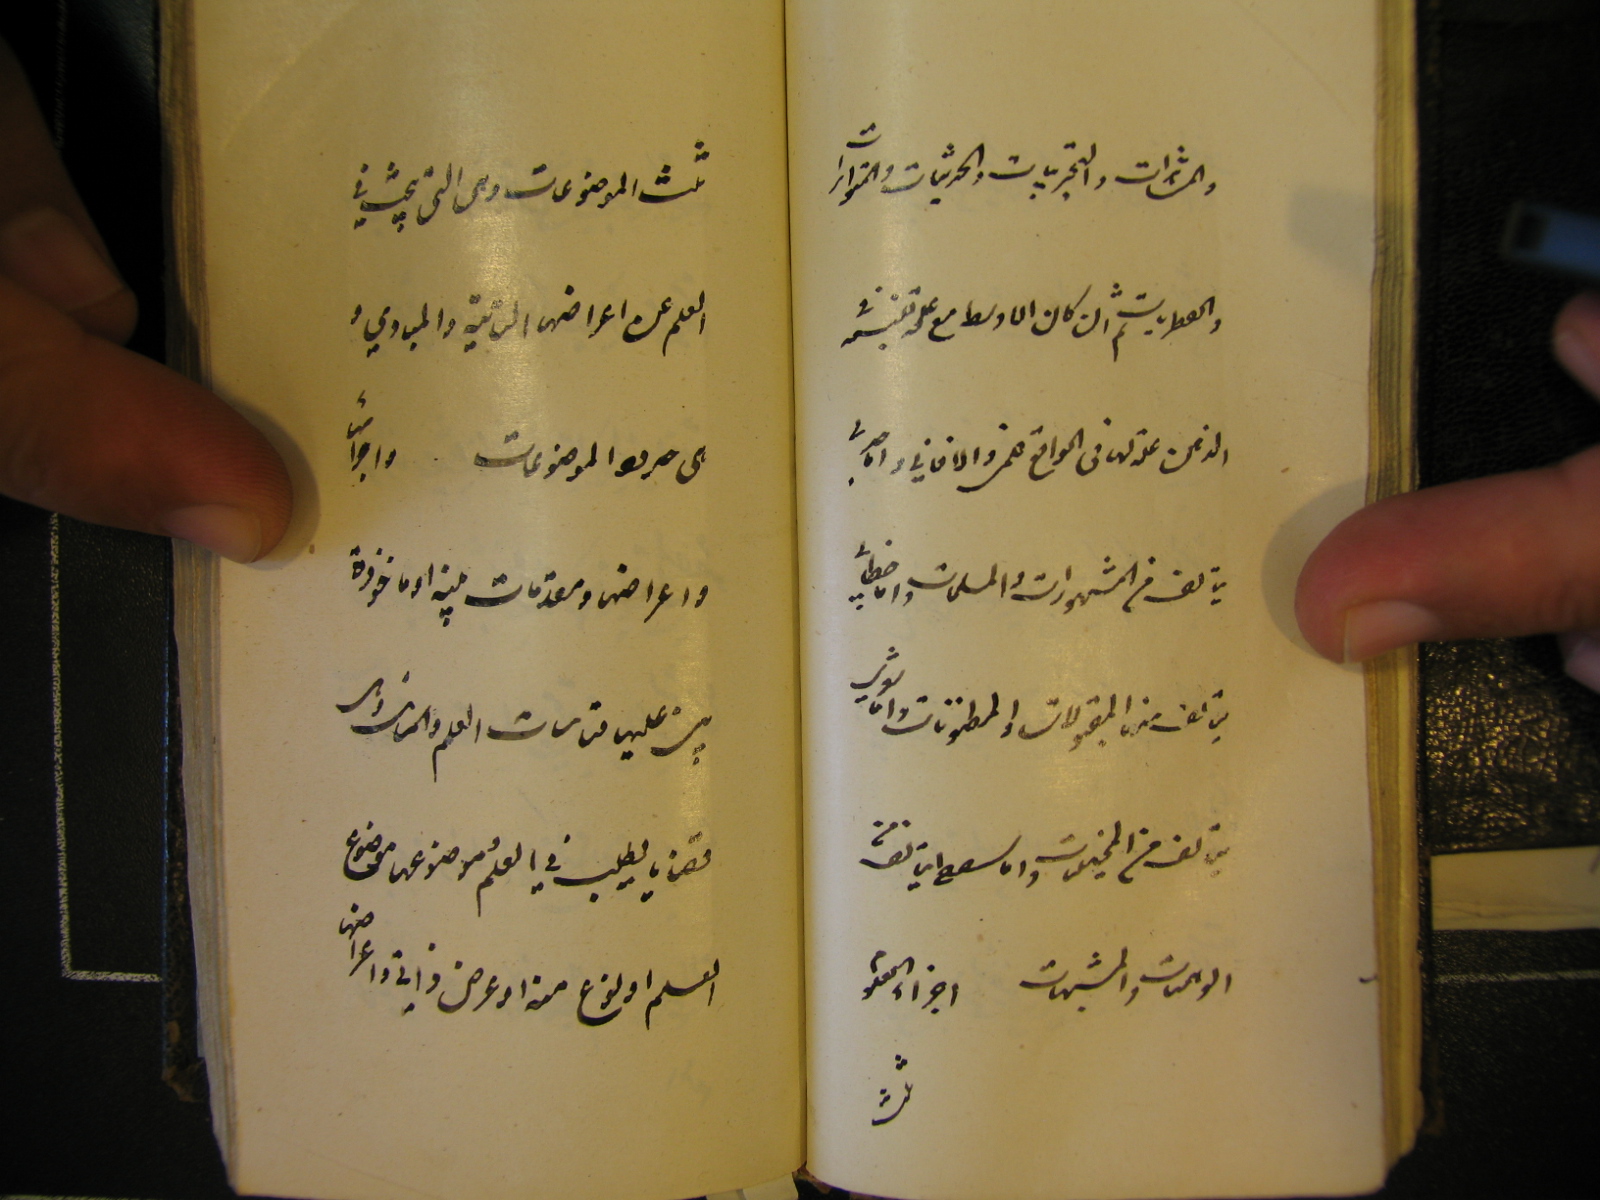 والمشاهدات والتجربيات والحدسيات والمتواترات
والفطريات ثم ان كان الاوسط مع علته للنسبة في
الذهن علة لها في الواقع فلمي والا فاني واما جدلي
يتالف من المشهورات والمسلمات واما خطابي
يتالف من المقبولات والمظنونات واما شعري
يتالف من المخيلات واما سفسطي يتالف من
الوهميات والمشبهات اجزاء العلوم
ثلث
ثلث الموضوعات وهى التى يبحث في
العلم عن اعراضها الذاتية والمبادي و
هى حدود الموضوعات واجزائها
واعراضها ومقدمات بينة او ماخوذة
يبتنى عليها قياسات العلم والمسائل وهى
قضايا يطلب في العلم موضوعها موضوع
العلم او نوع منه او عرض ذاتي واعراضها